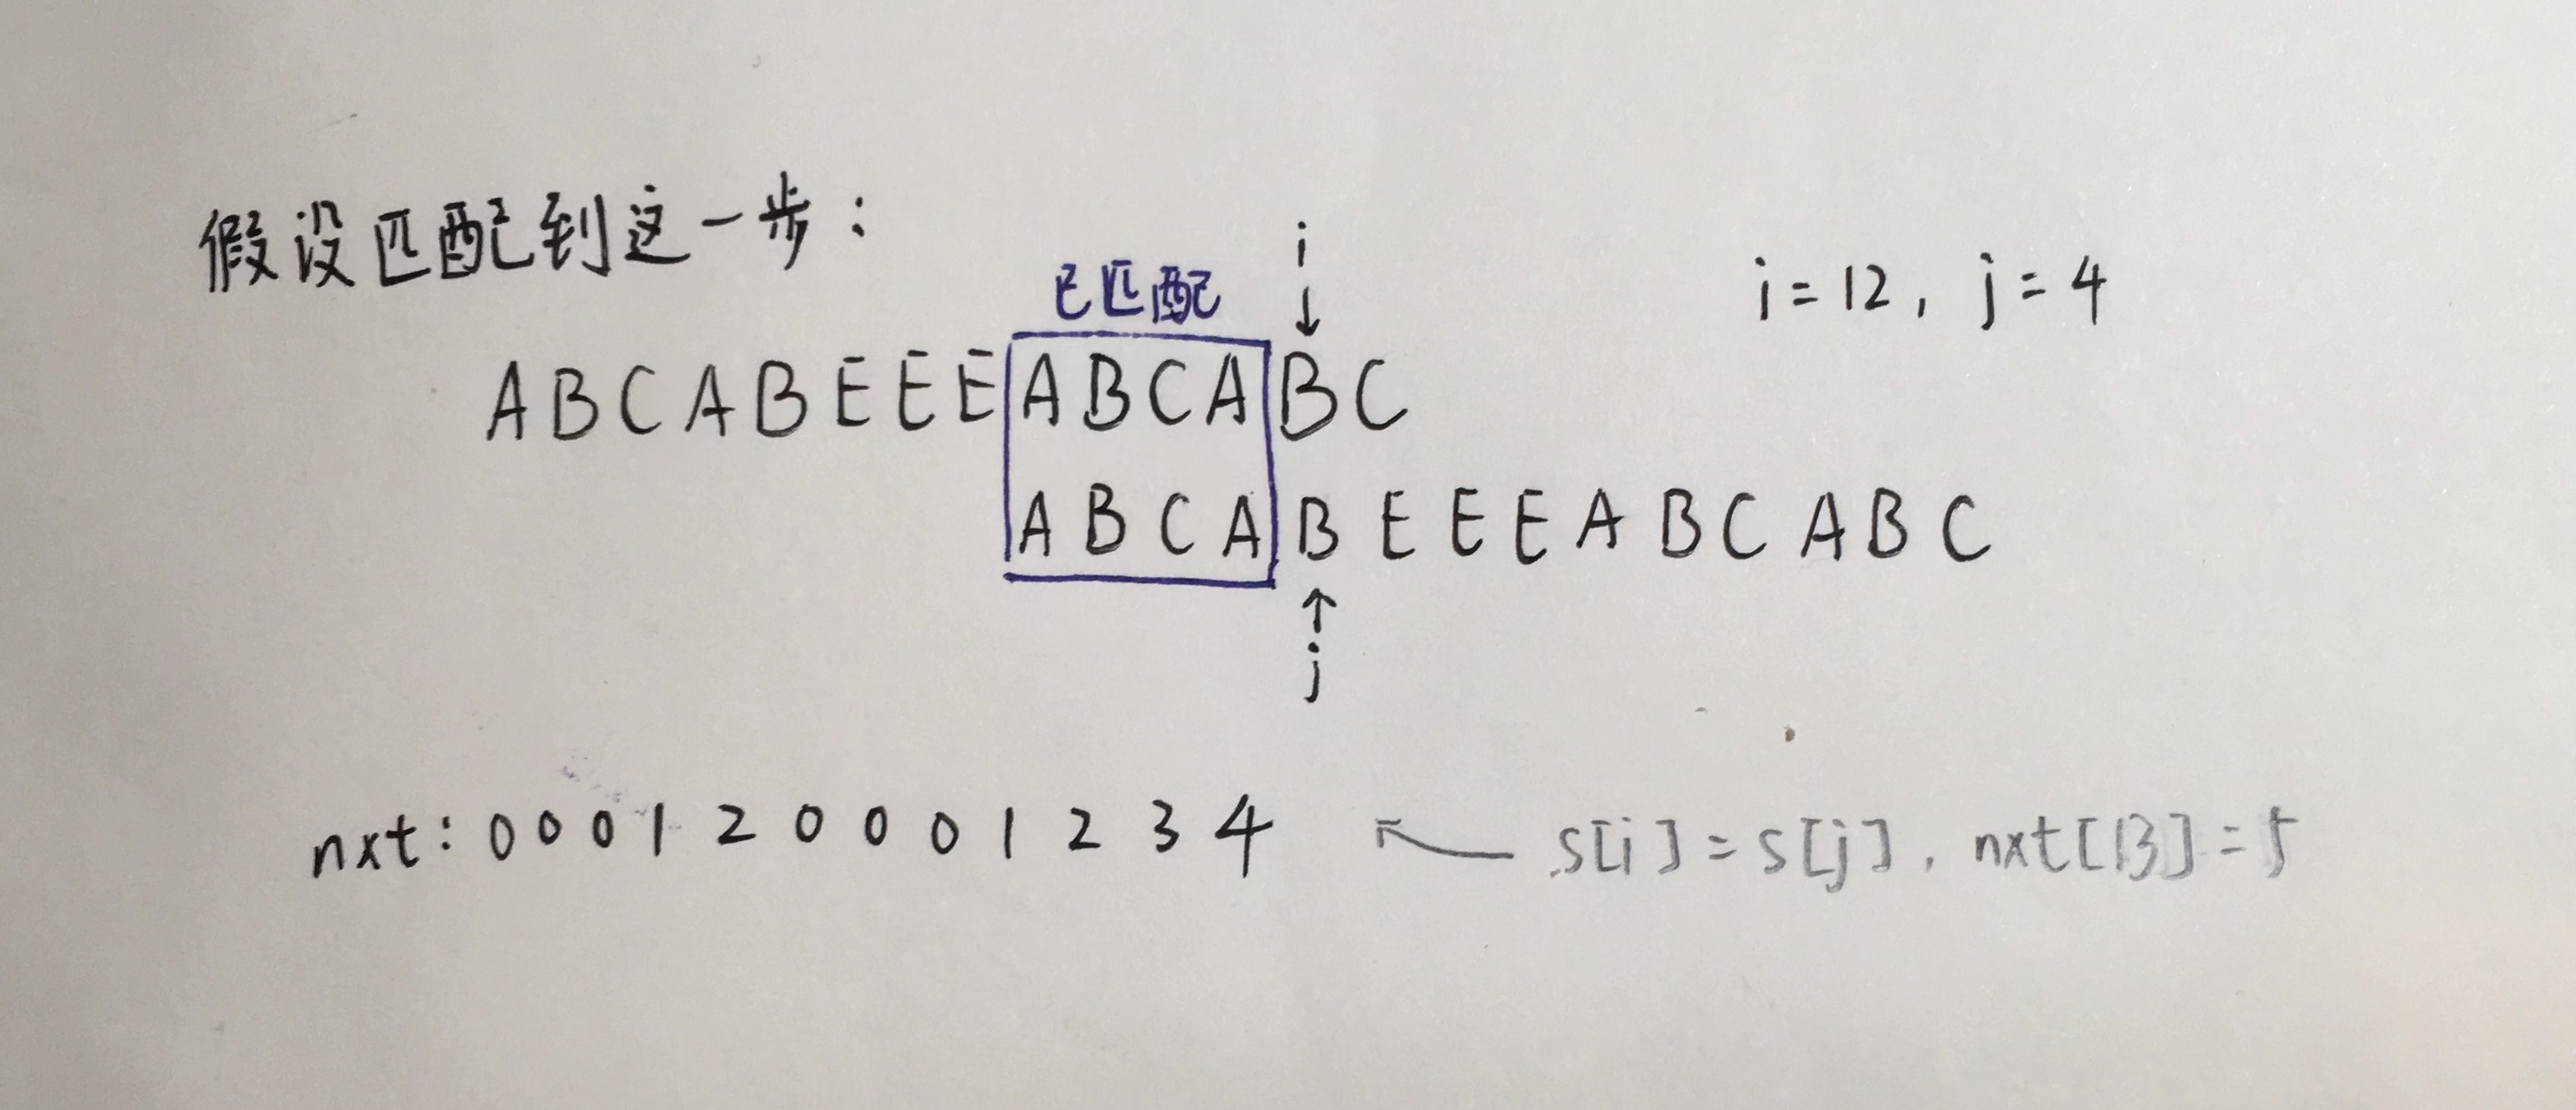 假设匹配到这一步：
i
i=12, j=4
已匹配
↓
ABCABEEEABCABC
ABCABEEEABCABC
↑
j
nxt: 0 0 0 1 2 0 0 0 1 2 3 4 ← s[i]=s[j], nxt[13]=5